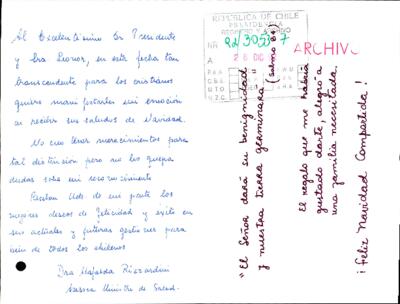 Al Excelentísimo Sr Presidente
y Sra Leonor, en esta fecha tan
transcendente para los cristianos
quiero manifestarles mi emoción
al recibir sus saludos de Navidad.
No creo tener merecimientos para
tal distinción pero no les quepa
dudas sobre mi reconocimiento
Reciban Uds de mi parte los
mejores deseos de felicidad y éxito en
sus actuales y futuras gestiones para
bien de todos los chilenos
Dra Mafalda Rizzardini
Asesora Ministro de Salud.
REPUBLICA DE CHILE
PRESIDENCIA
REGISTRO Y ARCHIVO
NR 92/30537
28 DIC
ARCHIVO
"El Señor dará su benignidad
y nuestra tierra germinará" (Salmo 84)
El regalo que me habría
gustado darte, alegró a
una familia necesitada.
¡Feliz Navidad Compartida!